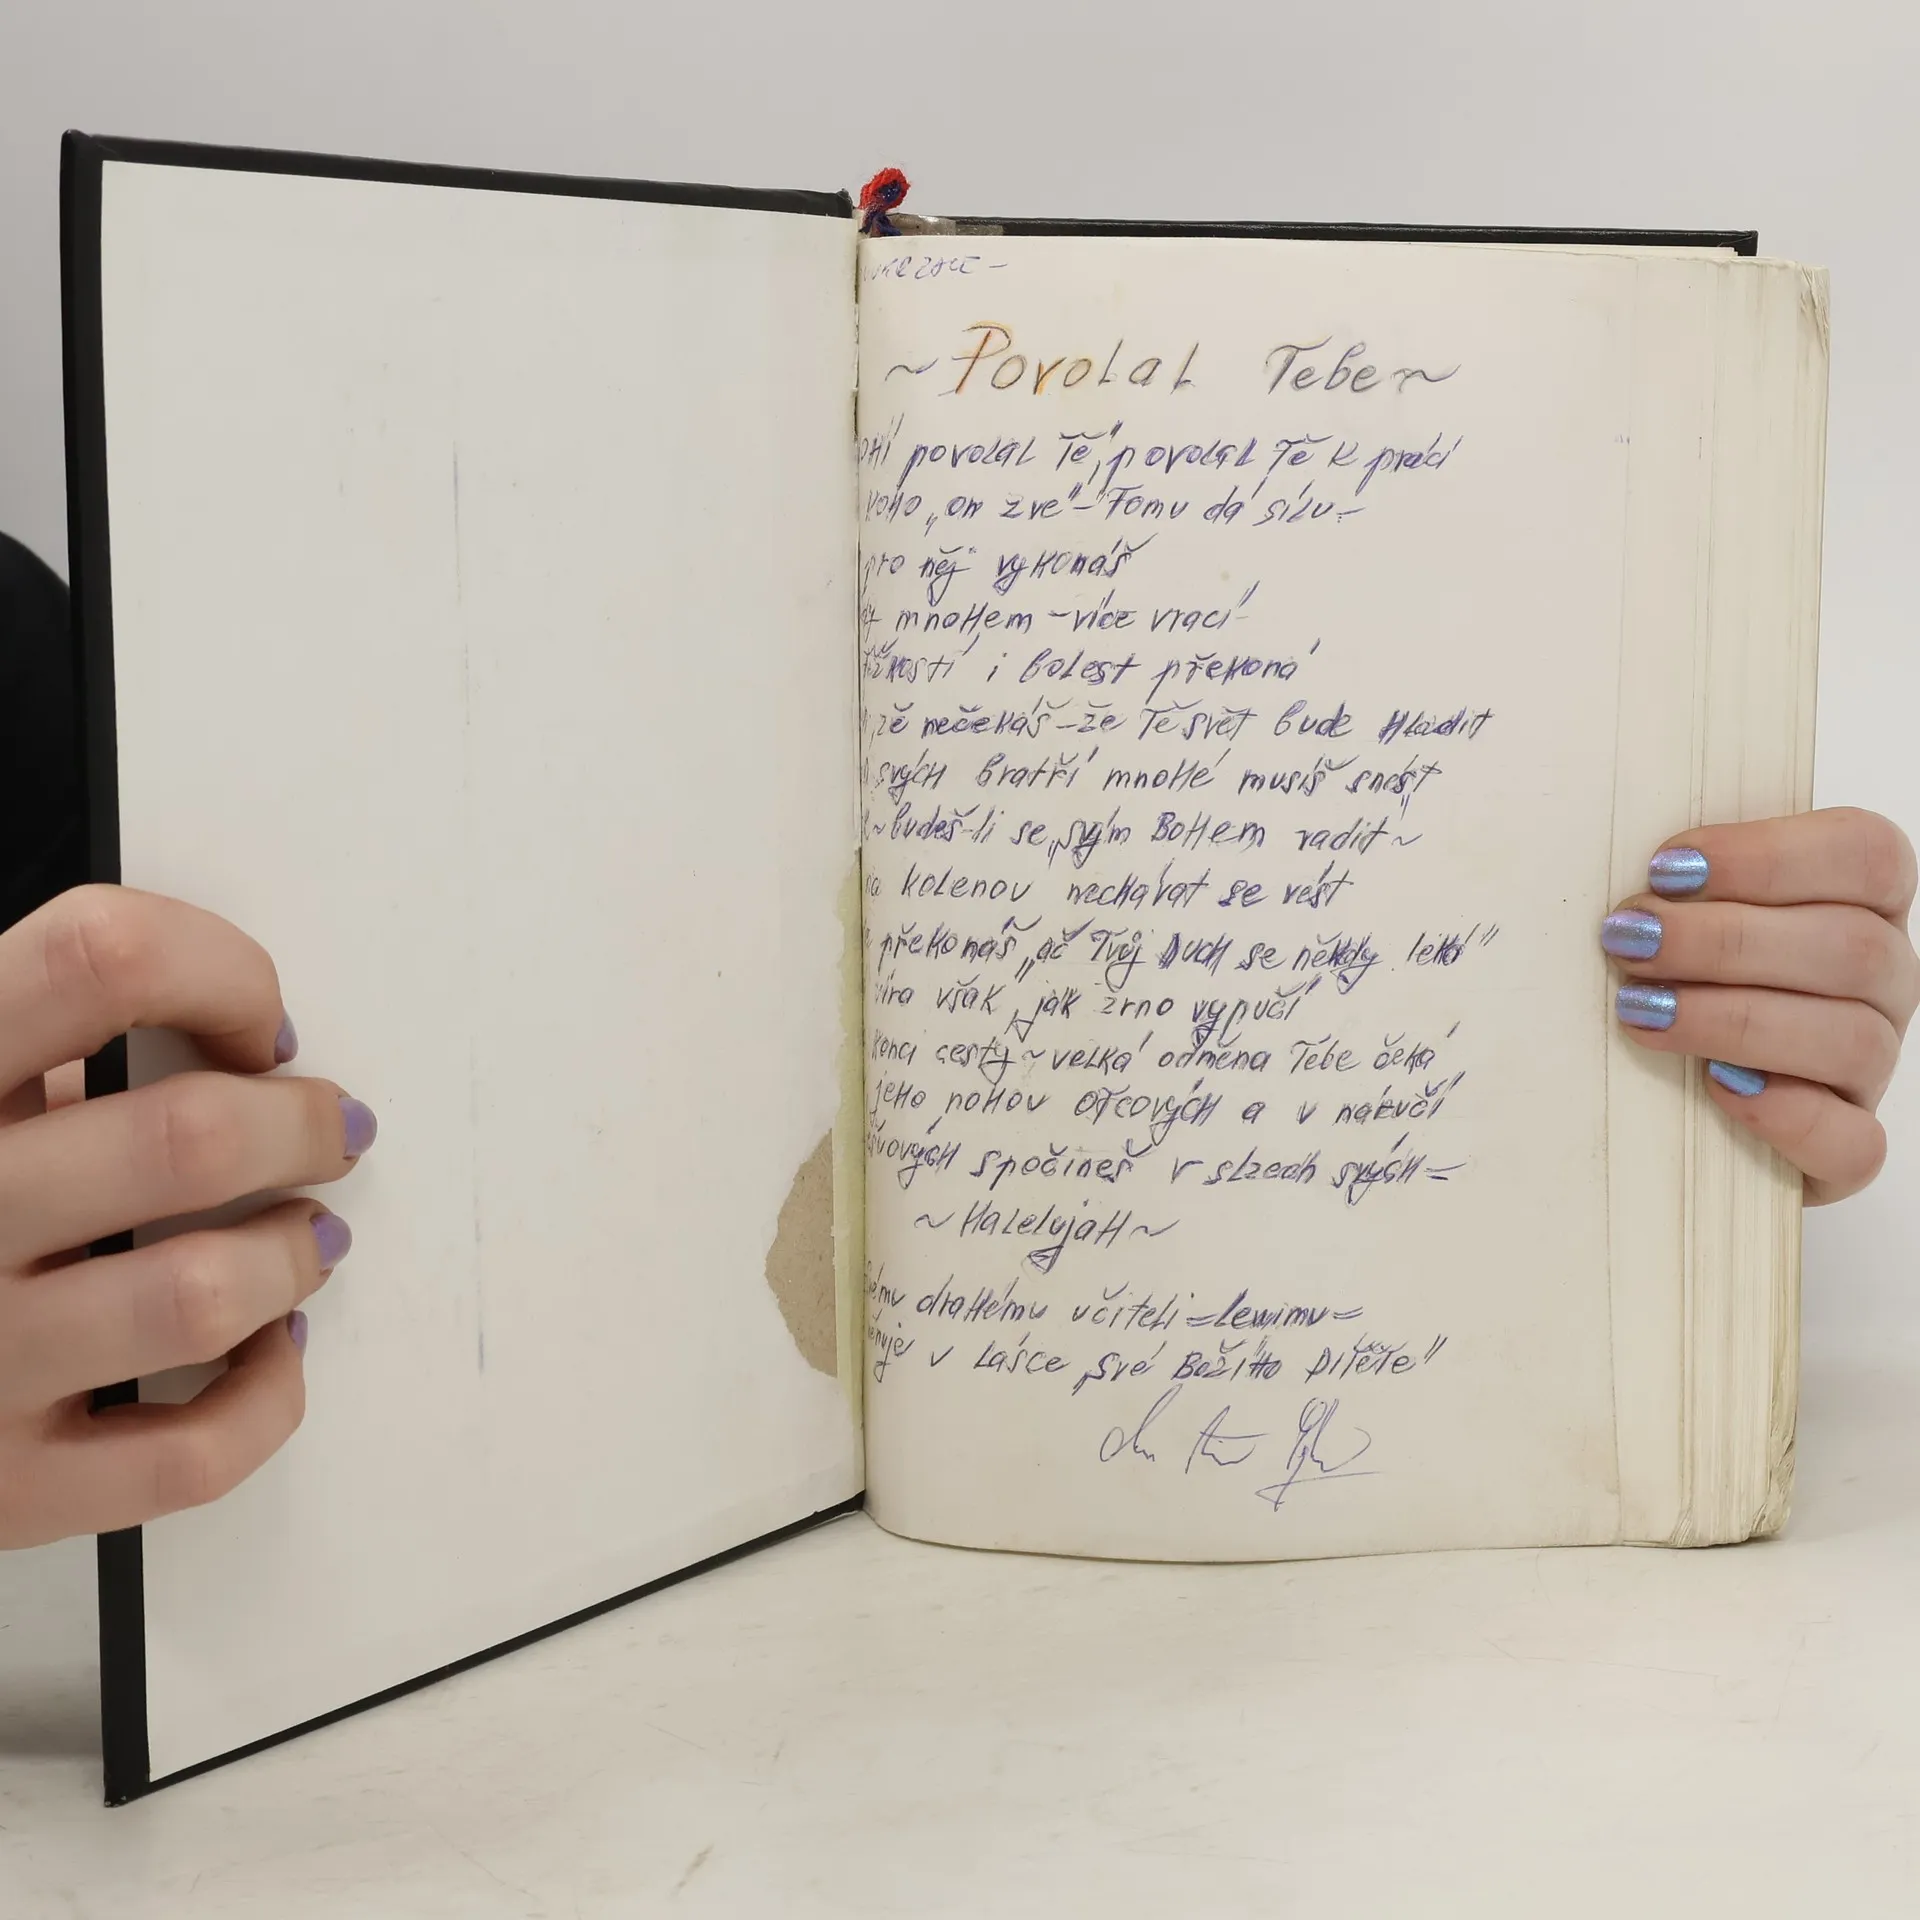 ~ Povolal Tebe ~
povolal Tě", povolal Tě k práci
koho „on zve" - Tomu dá sílu -
pro něj vykonáš
mnohem - více vrací -
i bolest překoná
že nečekáš - že Tě svět bude hladit
svých bratří mnohé musíš snést
~ budeš-li se „svým Bohem radit ~
kolenou nechávat se vést
překonáš „ač Tvůj Duch se někdy leká"
víra však „jak zrno vypučí
konci cesty ~ velká odměna Tebe čeká
jeho nohou otcových a v náručí
spočineš v slzech svých =
~ Halelujah ~
drahému učiteli = Lewimu =
v Lásce „své Božího Dítěte"